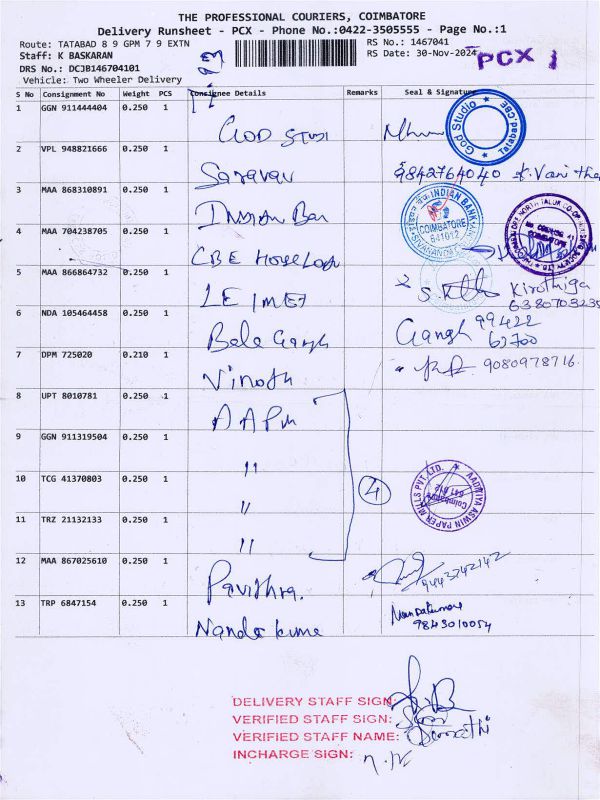 THE PROFESSIONAL COURIERS, COIMBATORE
Delivery Runsheet - PCX - Phone No.:0422-3505555 - Page No.:1
Route: TATABAD 8 9 GPM 7 9 EXTN
RS No.: 1467041
Staff: K BASKARAN
RS Date: 30-Nov-2024
PCX
DRS No.: DCJB146704101
Vehicle: Two Wheeler Delivery
S No Consignment No Weight PCS Consignee Details Remarks Seal & Signature
1 GGN 911444404 0.250 1 GOD STUDI
God Studio Tatabad-CBE
2 VPL 948821666 0.250 1 Saravav 9842764040 K. Vanitha
3 MAA 868310891 0.250 1 Indian Ban
INDIAN BANK COIMBATORE 641012
4 MAA 704238705 0.250 1 CBE
5 MAA 866864732 0.250 1 Kiruthiga
6380703235
6 NDA 105464458 0.250 1 Bala Gangh Gangh 99422
63700
7 DPM 725020 0.210 1 Vinoth 9080978716
8 UPT 8010781 0.250 1 AAPM
9 GGN 911319504 0.250 1 "
10 TCG 41370803 0.250 1 " 4
AADHYA ASWIN PAPER MILLS PVT. LTD. Coimbatore 641 012
11 TRZ 21132133 0.250 1 "
12 MAA 867025610 0.250 1 Pavithra. 9443742142
13 TRP 6847154 0.250 1 Nanda kume Nandakumar
9843010054
DELIVERY STAFF SIGN:
VERIFIED STAFF SIGN:
VERIFIED STAFF NAME: Sumathi
INCHARGE SIGN: